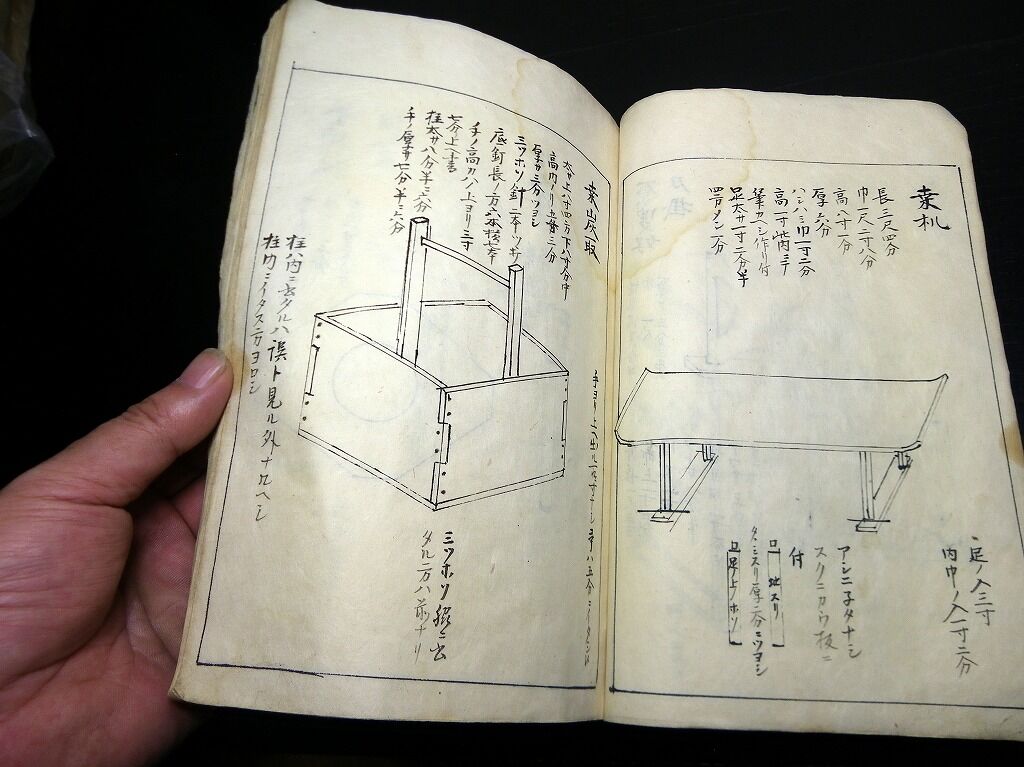 桒机
長三尺四分
巾一尺二寸八分
高八寸一分
厚六分
ハシハミ巾一寸二分
高一寸此内ミテ
筆カヘシ作リ付
足太サ一寸二分半
四方メン一分
足ノ入三寸
内巾ノ入一寸二分
アシニ子タナシ
スクニカウ板ニ
付
地スリ
タヽミスリ厚二分ニツヨシ
足ノ上ノホソ
桒山灰取
大サ上八寸四方下八寸分中
高内ノリ五寸三分
厚サ三分ツヨシ
三ツホソ針二本ツヽサ
底釘長ノ方六本横七本
手ノ高カハノ上ヨリ三寸
七分上ヘ書
柱太サ八分半ニ六分
手ノ厚サ七分半ニ六分
柱ハ内ニ玄タルハ誤ト見ル外ナルヘシ
柱内ニイタス方ヨロシ
三ツホソ脇ニ出
タル方ハ前ナリ